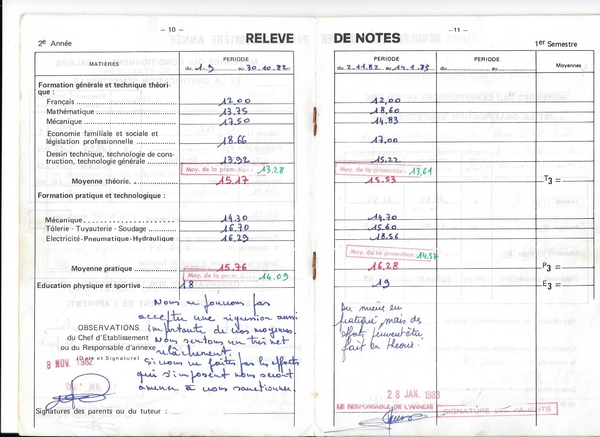 - 10 -
RELEVE
2e Année
PERIODE
MATIERES
du 1.9 au 30.10.82
Formation générale et technique théori-
que :
Français 12,00
Mathématique 13.75
Mécanique 17.50
Economie familiale et sociale et
législation professionnelle 18.66
Dessin technique, technologie de cons-
truction, technologie générale 13,92
Moy. de la promotion 13.28
Moyenne théorie 15.17
Formation pratique et technologique :
Mécanique 14.30
Tôlerie - Tuyauterie - Soudage 16.70
Electricité-Pneumatique-Hydraulique 16,29
Moyenne pratique 15.76
Moy. de la prom. 14.09
Education physique et sportive 18
Nous ne pouvons pas
accepter une régression aussi
importante de vos moyennes.
Nous sentons un très net
relâchement.
Si vous ne faites pas les efforts
qui s'imposent nous serons
amener à vous sanctionner.
OBSERVATIONS
du Chef d'Etablissement
ou du Responsable d'annexe
(Date et Signature)
8 NOV. 1982
Signatures des parents ou du tuteur :
- 11 -
DE NOTES
1er Semestre
PERIODE
PERIODE
Moyennes
du 2.11.82 au 14.1.83
du au
12,00
18,60
14.83
17,00
15.22
Moy. de la promotion 13,61
15.53
T3 =
14,70
15.60
18.56
Moy. de la promotion 14.57
16.28
P3 =
19
E3 =
Du mieux en
pratique, mais des
efforts peuvent être
fait en théorie.
28 JAN. 1983
LE RESPONSABLE DE L'ANNEXE
SIGNATURE DES PARENTS